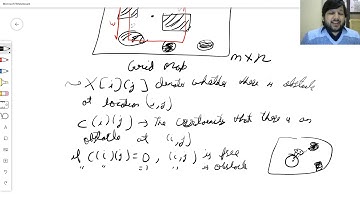 m x n
Grid Map
~ X[i][j] denotes whether there is obstacle
at location (i,j)
C(i)(j) → The certainty that there is an
obstacle at (i,j)
if C(i)(j) = 0, (i,j) is free
" " =1 " is obstacle